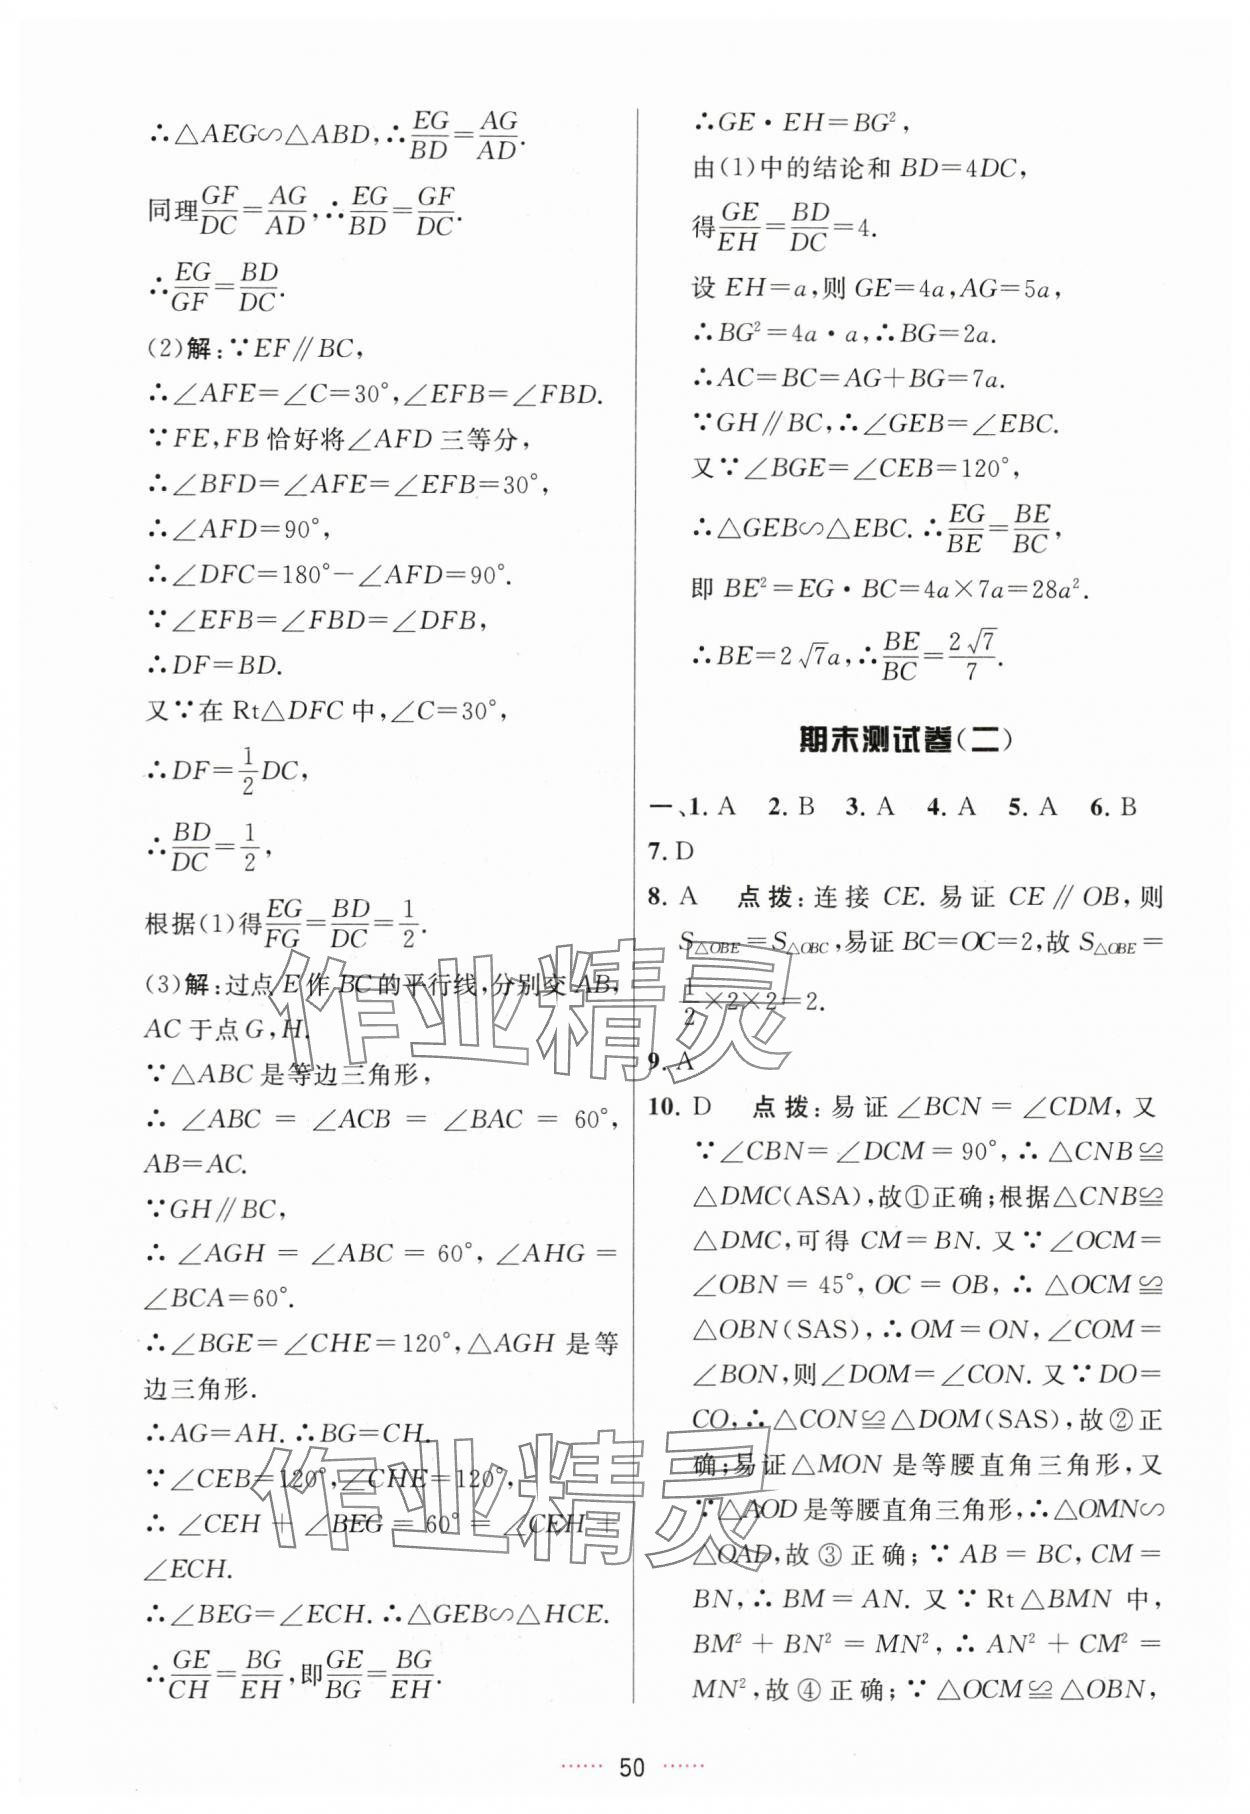 ∴△AEG∽△ABD,∴EG/BD=AG/AD.
同理GF/DC=AG/AD,∴EG/BD=GF/DC.
∴EG/GF=BD/DC.
(2)解:∵EF∥BC,
∴∠AFE=∠C=30°,∠EFB=∠FBD.
∵FE,FB恰好将∠AFD三等分,
∴∠BFD=∠AFE=∠EFB=30°,
∴∠AFD=90°,
∴∠DFC=180°-∠AFD=90°.
∵∠EFB=∠FBD=∠DFB,
∴DF=BD.
又∵在Rt△DFC中,∠C=30°,
∴DF=1/2DC,
∴BD/DC=1/2,
根据(1)得EG/FG=BD/DC=1/2.
(3)解:过点E作BC的平行线,分别交AB,
AC于点G,H.
∵△ABC是等边三角形,
∴∠ABC=∠ACB=∠BAC=60°,
AB=AC.
∵GH∥BC,
∴∠AGH=∠ABC=60°,∠AHG=
∠BCA=60°.
∴∠BGE=∠CHE=120°,△AGH是等
边三角形.
∴AG=AH.∴BG=CH.
∵∠CEB=120°,∠CHE=120°,
∴∠CEH+∠BEG=60°=∠CEH+
∠ECH.
∴∠BEG=∠ECH.∴△GEB∽△HCE.
∴GE/CH=BG/EH,即GE/BG=BG/EH.
∴GE·EH=BG²,
由(1)中的结论和BD=4DC,
得GE/EH=BD/DC=4.
设EH=a,则GE=4a,AG=5a,
∴BG²=4a·a,∴BG=2a.
∴AC=BC=AG+BG=7a.
∵GH∥BC,∴∠GEB=∠EBC.
又∵∠BGE=∠CEB=120°,
∴△GEB∽△EBC.∴EG/BE=BE/BC,
即BE²=EG·BC=4a×7a=28a².
∴BE=2√7a,∴BE/BC=2√7/7.
期末测试卷(二)
一、1.A 2.B 3.A 4.A 5.A 6.B
7.D
8.A 点拨:连接CE.易证CE∥OB,则
S△OBE=S△OBC,易证BC=OC=2,故S△OBE=
1/2×2×2=2.
9.A
10.D 点拨:易证∠BCN=∠CDM,又
∵∠CBN=∠DCM=90°,∴△CNB≌
△DMC(ASA),故①正确;根据△CNB≌
△DMC,可得CM=BN.又∵∠OCM=
∠OBN=45°,OC=OB,∴△OCM≌
△OBN(SAS),∴OM=ON,∠COM=
∠BON,则∠DOM=∠CON.又∵DO=
CO,∴△CON≌△DOM(SAS),故②正
确;易证△MON是等腰直角三角形,又
∵△AOD是等腰直角三角形,∴△OMN∽
△OAD,故③正确;∵AB=BC,CM=
BN,∴BM=AN.又∵Rt△BMN中,
BM²+BN²=MN²,∴AN²+CM²=
MN²,故④正确;∵△OCM≌△OBN,
50
作业精灵
作业精灵